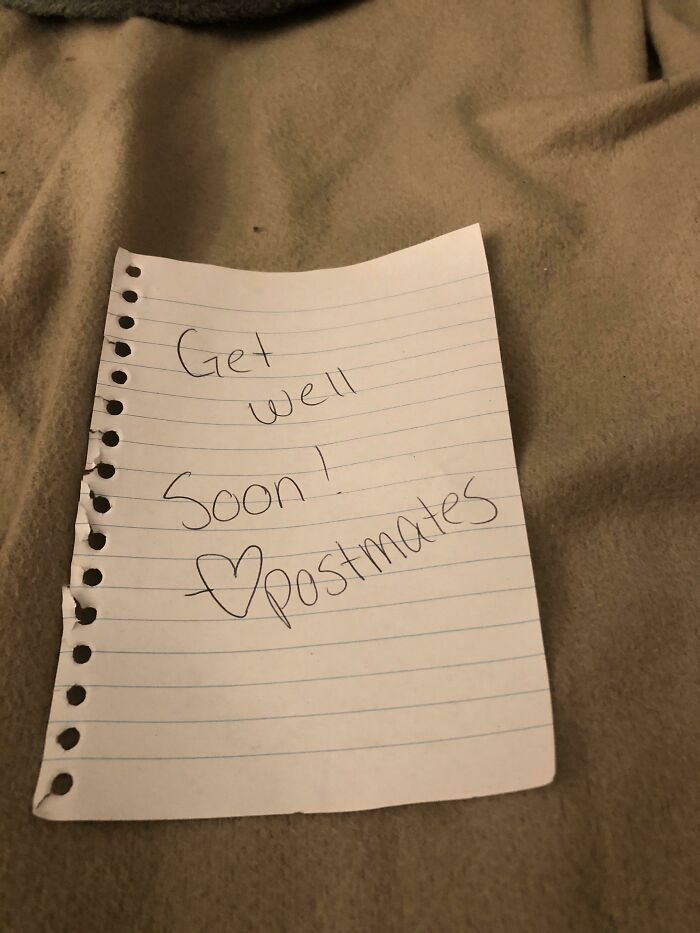 Get
well
Soon!
-♡postmates